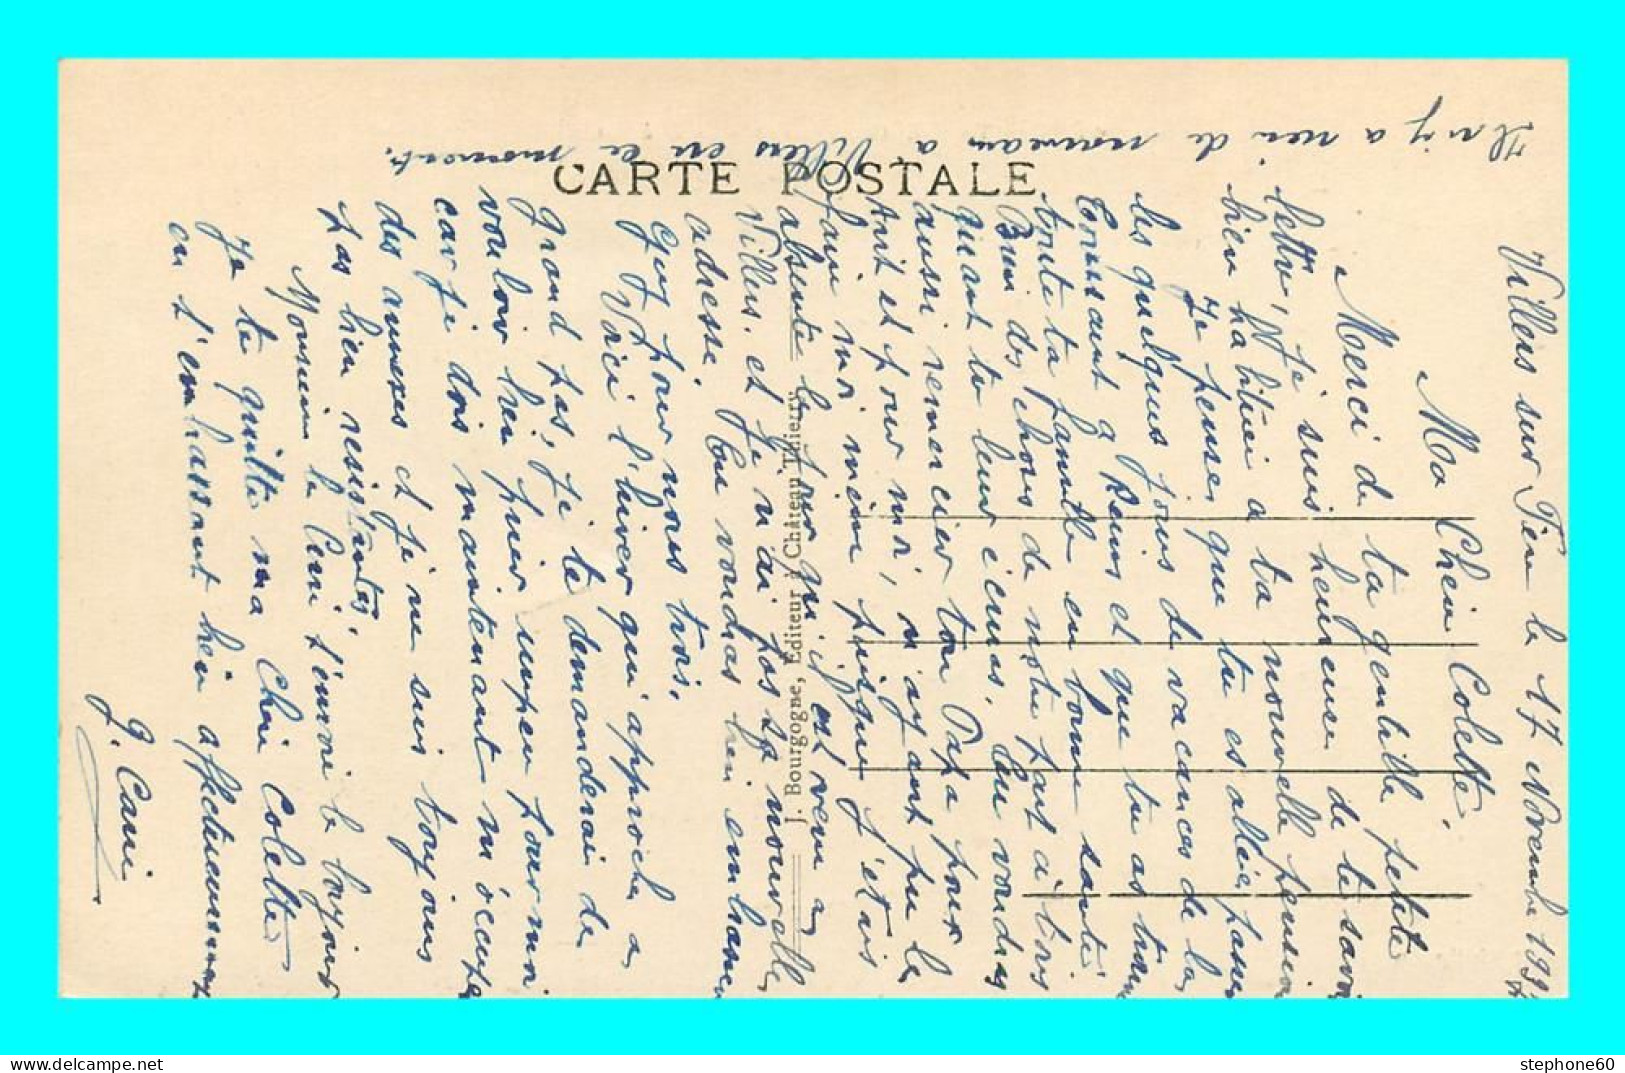 CARTE POSTALE
J. Bourgogne, Editeur à Château Thierry
Il n'y a rien de nouveau a Villers en ce moment.
Villers sur Fère le 17 Novembre 193
Ma Chère Colette.
Merci de ta gentille petite
lettre, je suis heureuse de te savoir
bien habituée a ta nouvelle pension
Je pense que tu es allée passer
les quelques jours de vacances de la
Toussaint a Reims et que tu as trouvé
toute ta famille en bonne santé
Bien des choses de notre part a tous
quant tu leur écriras. Tu voudras
aussi remercier ton Papa pour
et pour moi, n'ayant pu le
faire moi même puisque j'étais
absente le jour qu'il est venu a
Villers. et je n'ai pas sa nouvelle
adresse. Tu voudras bien embrasser
Guy pour nous trois.
Voici l'hiver qui approche a
grand pas, je te demanderai de
vouloir bien prier un peu pour moi
car je dois maintenant m'occuper
des annexes et je ne suis toujours
pas bien résistante.
Monsieur le Curé t'envoie le bonjour
Je te quitte ma Chère Colette
en t'embrassant bien affectueusement